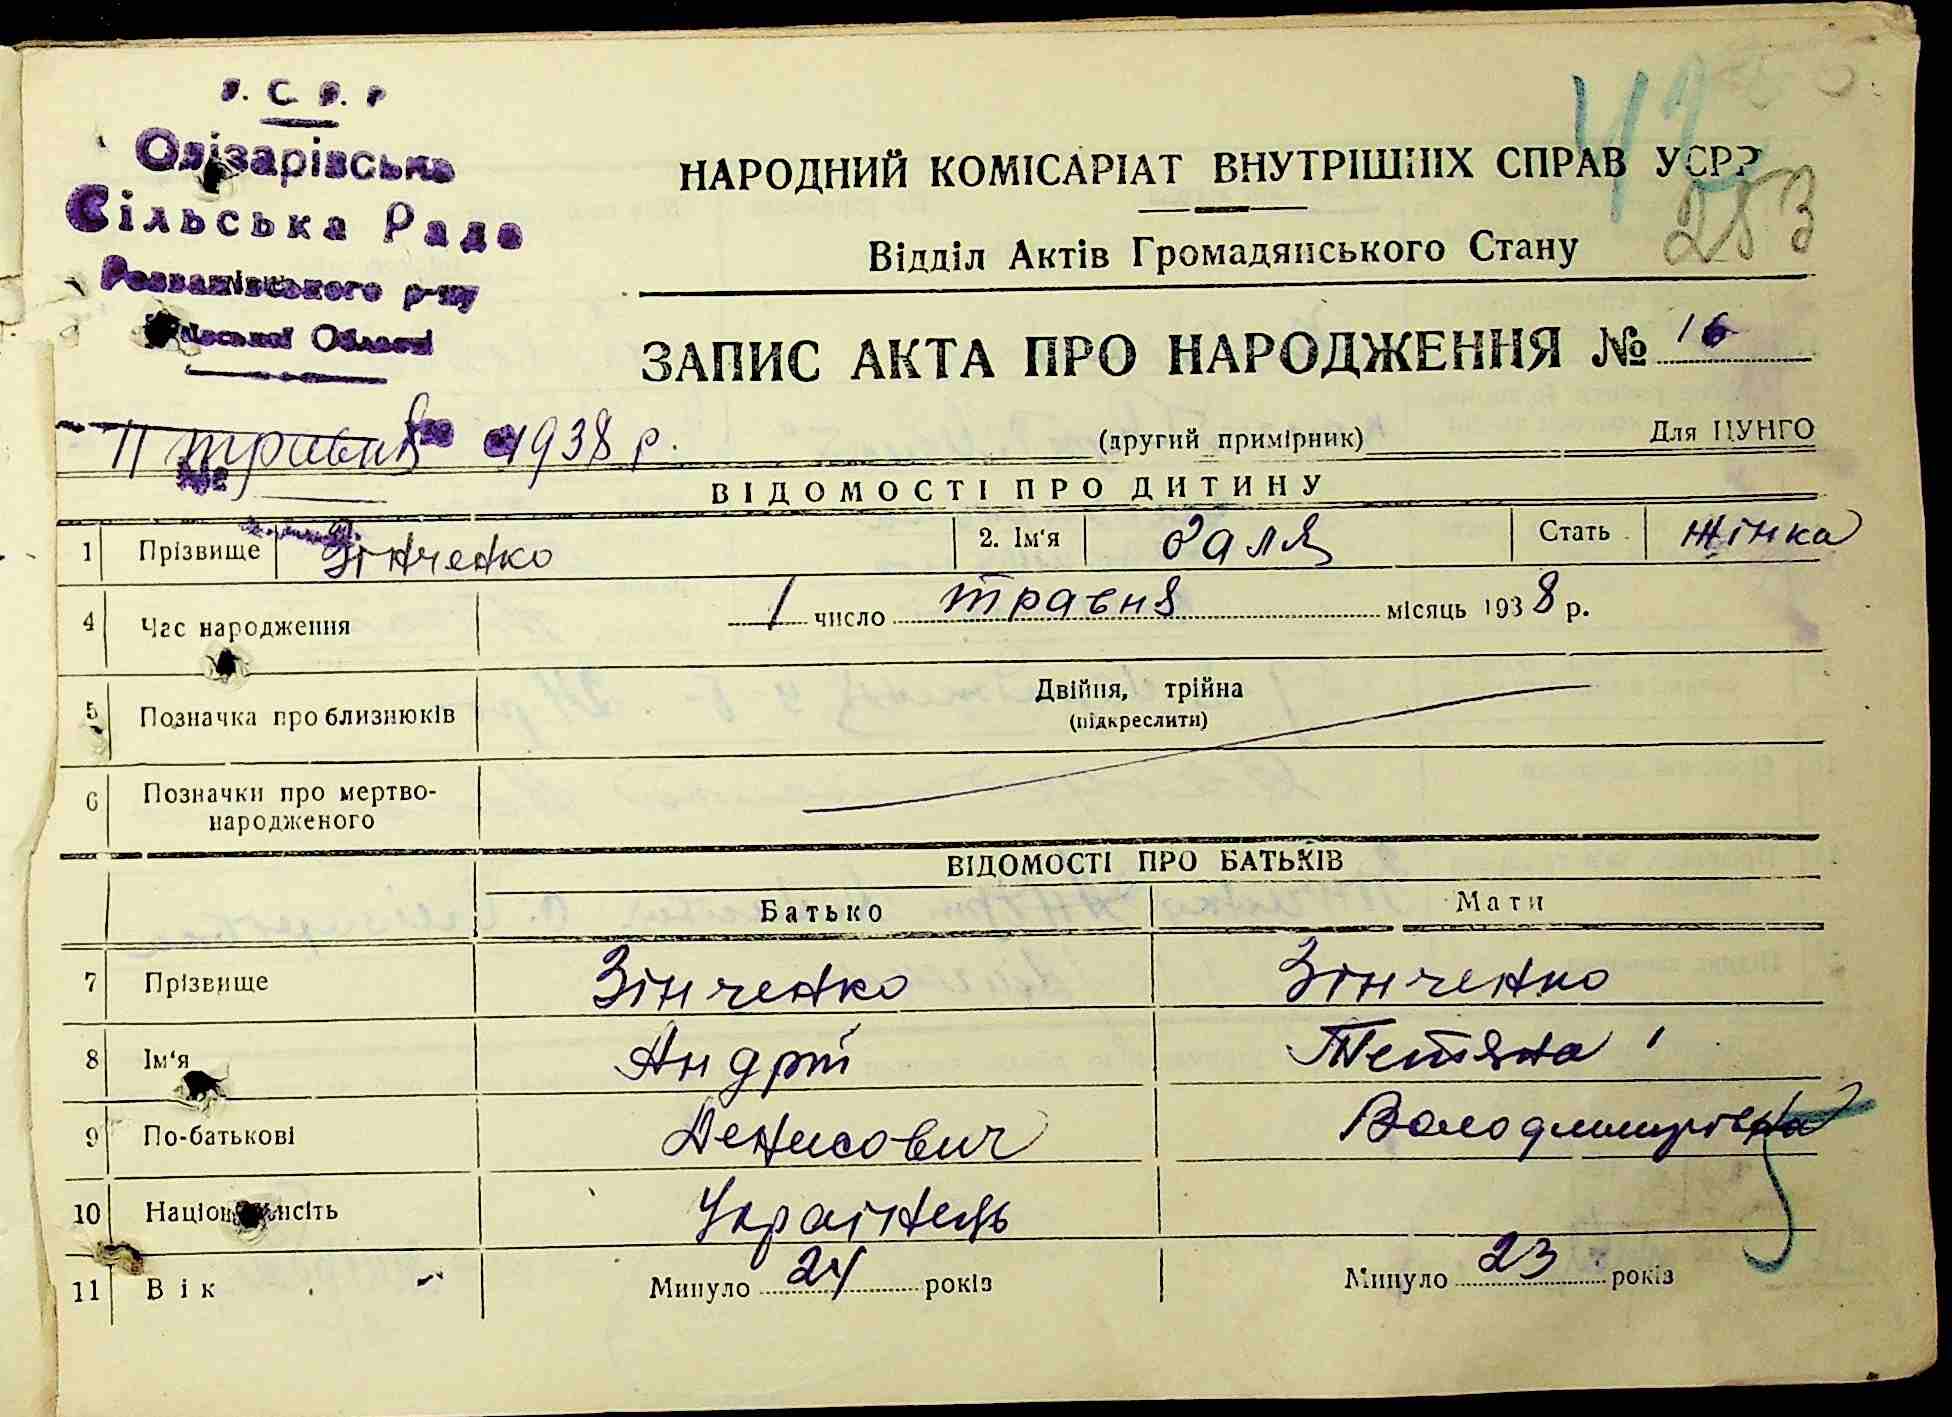 У. С. Р. Р
Олізарівська
Сільська Рада
Розважівського р-ну
Київської Області
42
253
НАРОДНИЙ КОМІСАРІАТ ВНУТРІШНІХ СПРАВ УСРР
Відділ Актів Громадянського Стану
ЗАПИС АКТА ПРО НАРОДЖЕННЯ № 16
11 травня 1938 р.
(другий примірник)
Для ЦУНГО
№
ВІДОМОСТІ ПРО ДИТИНУ
1 Прізвище Зінченко 2. Ім'я Галя Стать Жінка
4 Час народження 1 число травня місяць 1938 р.
5 Позначка про близнюків Двійня, трійна
(підкреслити)
6 Позначки про мертво-
народженого
ВІДОМОСТІ ПРО БАТЬКІВ
Батько Мати
7 Прізвище Зінченко Зінченко
8 Ім'я Андрій Тетяна
9 По-батькові Денисович Володимирівна
10 Національність Українець
11 Вік Минуло 24 років Минуло 23 років